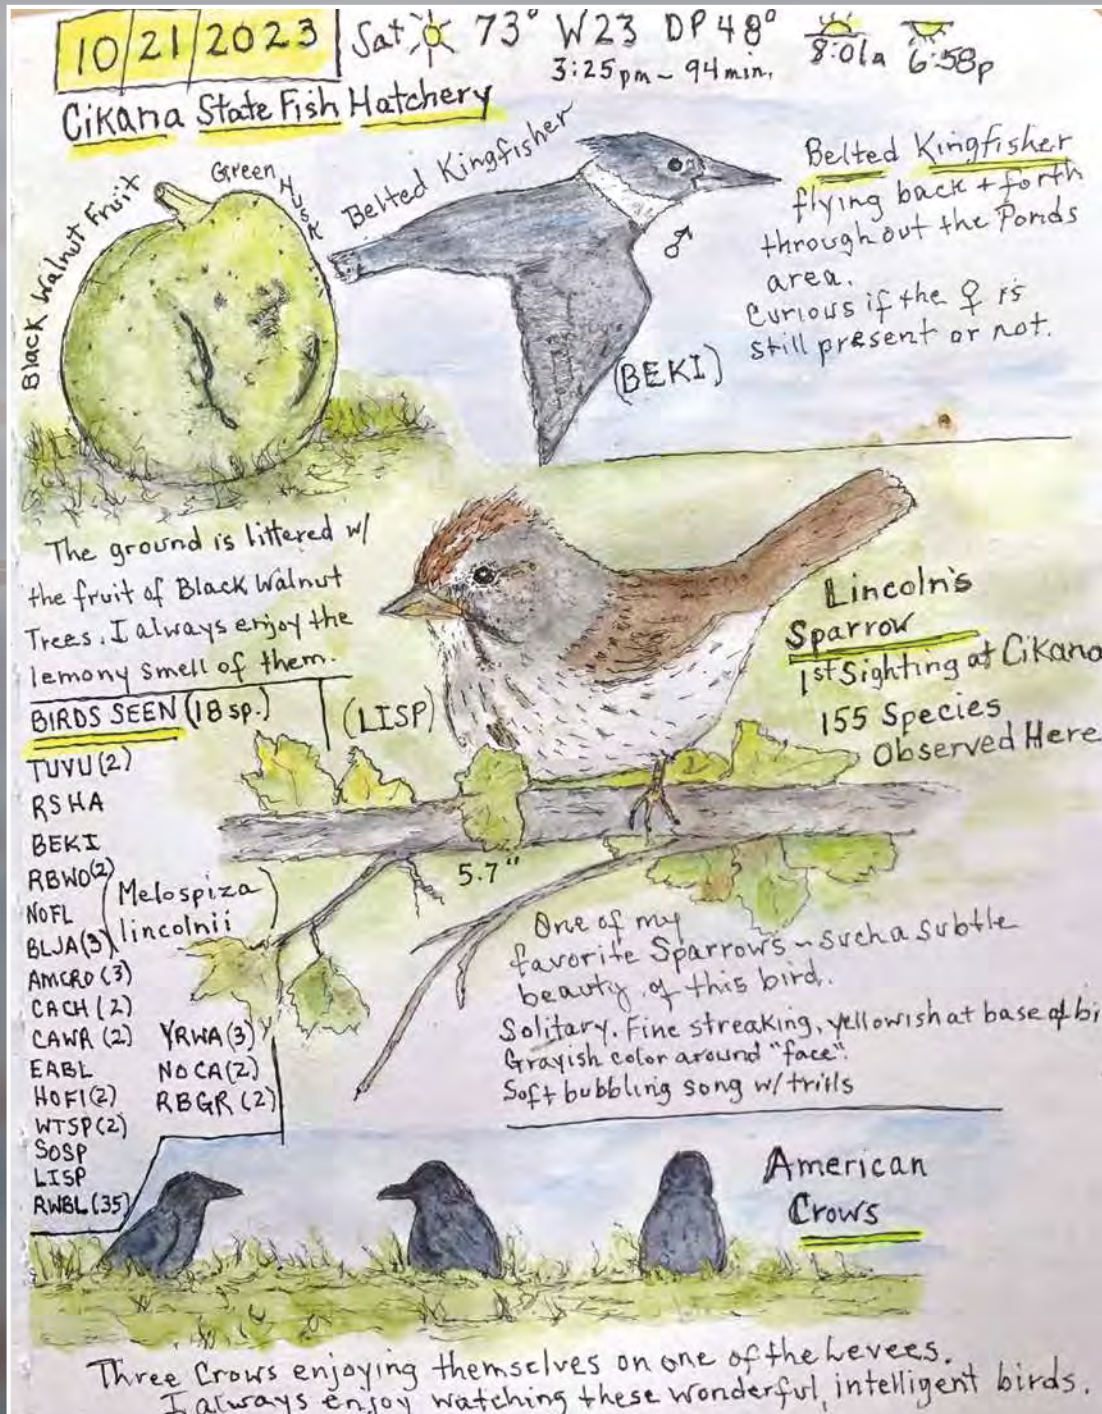 10/21/2023
Sat 73° W23 DP48°
3:25pm ~ 94min.
8:01a 6:58p
Cikana State Fish Hatchery
Black Walnut Fruit
Green Husk
Belted Kingfisher
♂
(BEKI)
Belted Kingfisher
flying back + forth
throughout the Ponds
area.
Curious if the ♀ is
still present or not.
The ground is littered w/
the fruit of Black Walnut
Trees. I always enjoy the
lemony smell of them.
Lincoln's
Sparrow
1st Sighting at Cikana
155 Species
Observed Here
(LISP)
BIRDS SEEN (18 sp.)
TUVU (2)
RSHA
BEKI
RBWO (2)
NOFL
BLJA (3)
AMCRO (3)
CACH (2)
CAWR (2)
EABL
HOFI (2)
WTSP (2)
SOSP
LISP
RWBL (35)
YRWA (3)
NOCA (2)
RBGR (2)
(Melospiza
lincolnii)
5.7"
One of my
favorite Sparrows ~ such a subtle
beauty of this bird.
Solitary. Fine streaking, yellowish at base of bi
Grayish color around "face".
Soft bubbling song w/ trills
American
Crows
Three Crows enjoying themselves on one of the Levees.
I always enjoy watching these wonderful, intelligent birds.